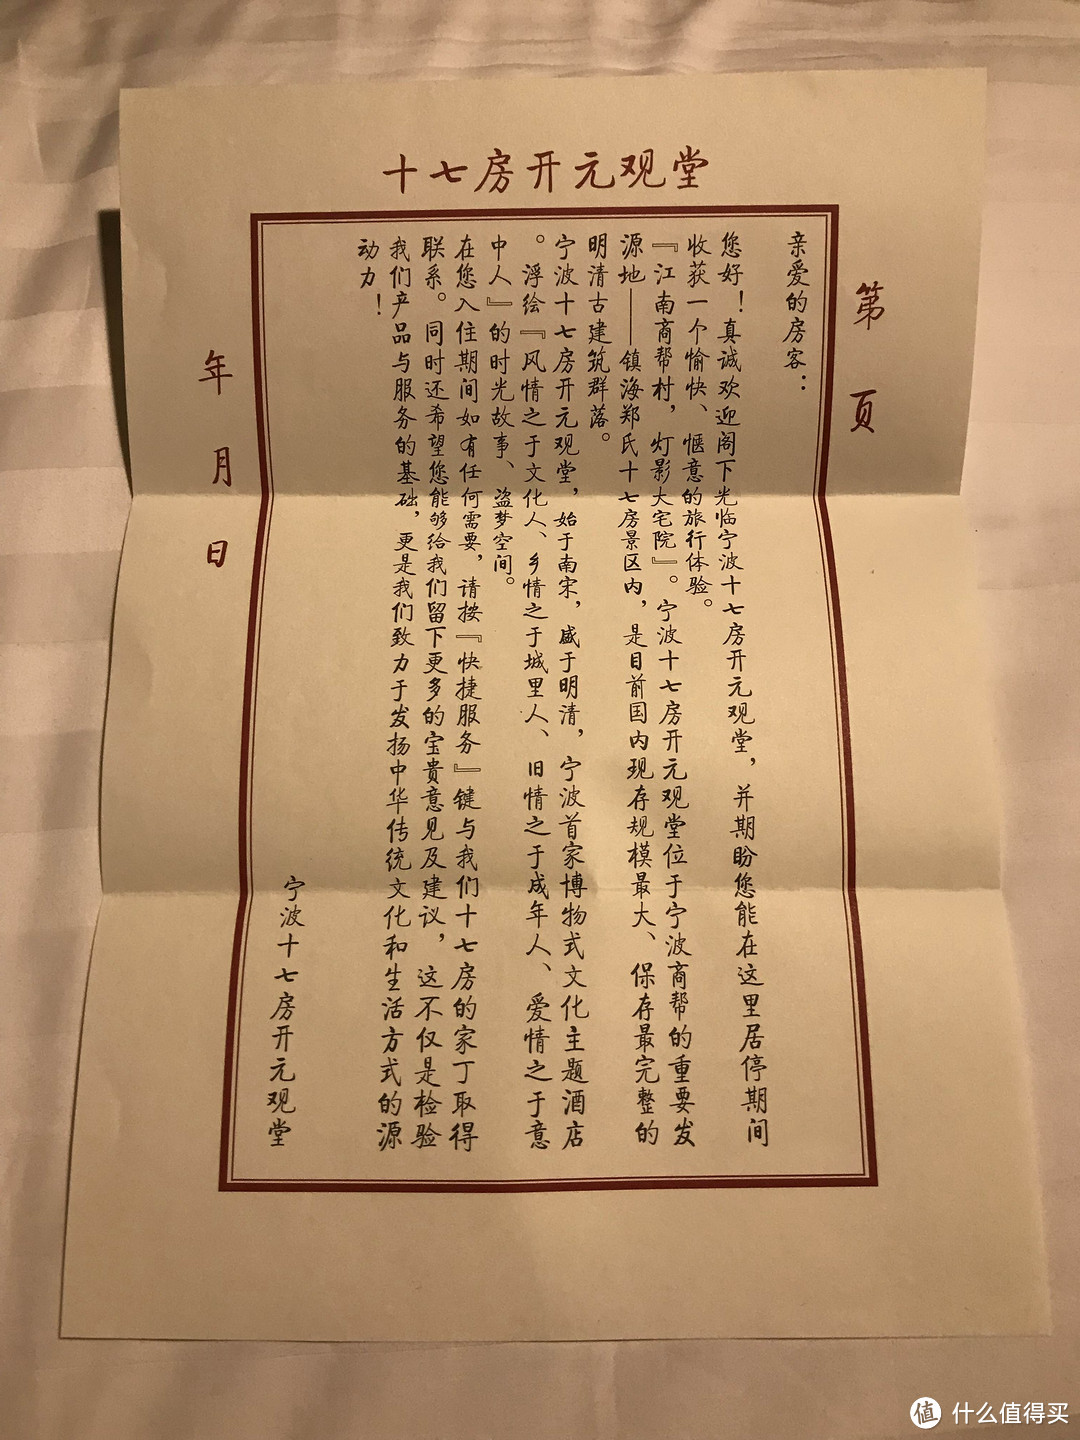 十七房开元观堂
第 页
亲爱的房客：
您好！真诚欢迎阁下光临宁波十七房开元观堂，并期盼您能在这里居停期间
收获一个愉快、惬意的旅行体验。
『江南商帮村，灯影大宅院』。宁波十七房开元观堂位于宁波商帮的重要发
源地——镇海郑氏十七房景区内，是目前国内现存规模最大、保存最完整的
明清古建筑群落。
宁波十七房开元观堂，始于南宋，盛于明清，宁波首家博物式文化主题酒店
。浮绘『风情之于文化人、乡情之于城里人、旧情之于成年人、爱情之于意
中人』的时光故事、盗梦空间。
在您入住期间如有任何需要，请按『快捷服务』键与我们十七房的家丁取得
联系。同时还希望您能够给我们留下更多的宝贵意见及建议，这不仅是检验
我们产品与服务的基础，更是我们致力于发扬中华传统文化和生活方式的源
动力！
宁波十七房开元观堂
年 月 日
值 什么值得买